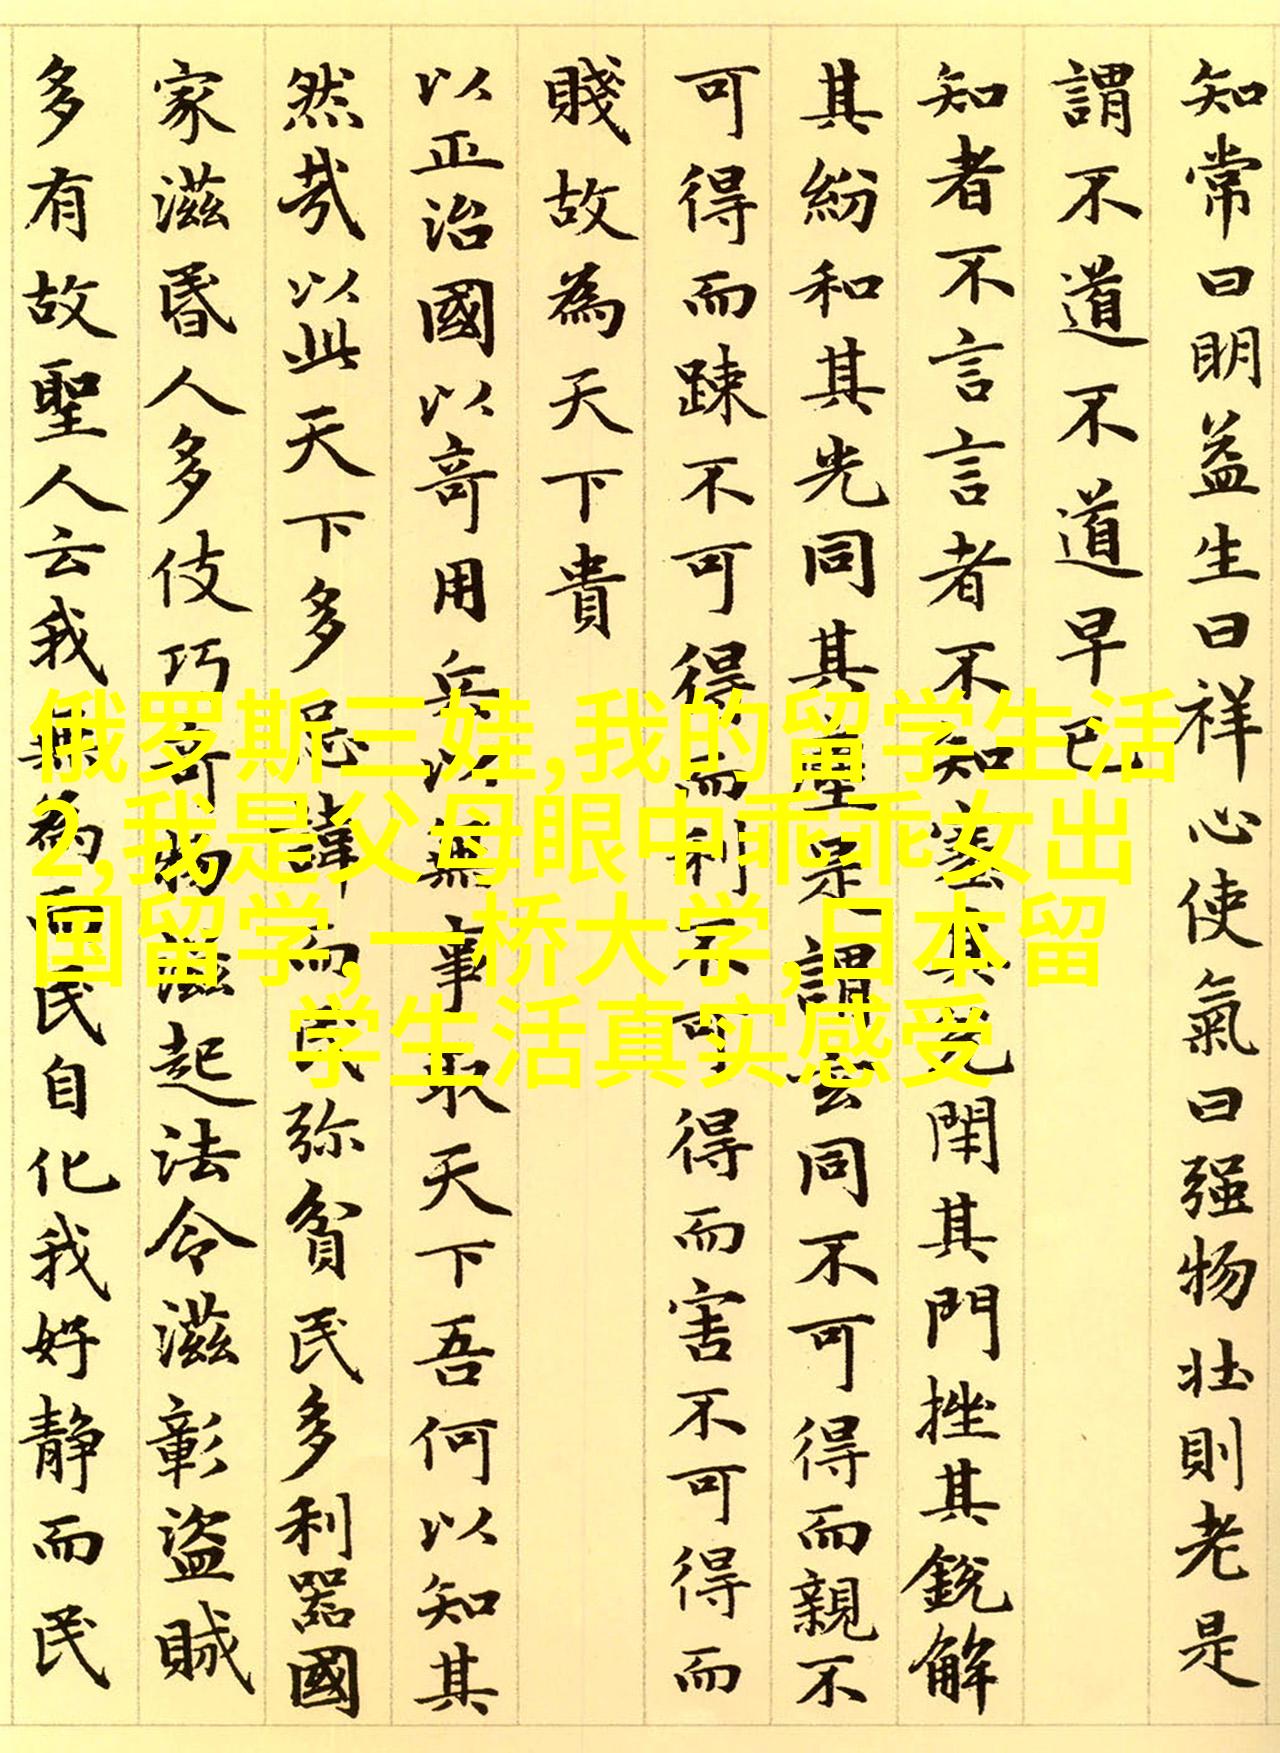 知常曰明益生曰祥心使氣曰强物壯則老是
謂不道不道早已
知者不言言者不知塞其兑閇其門挫其銳解
其紛和其光同其塵是謂玄同不可得而親不
可得而踈不可得而利不可得而害不可得而
賤故為天下貴
以正治國以奇用兵以無事取天下吾何以知其
然哉以此天下多忌諱而民弥貧民多利器國
家滋昬人多伎巧奇物滋起法令滋彰盜賊
多有故聖人云我無為而民自化我好静而民
俄罗斯三娃,我的留学生活
2,我是父母眼中乖乖女出
国留学,一桥大学,日本留
学生活真实感受